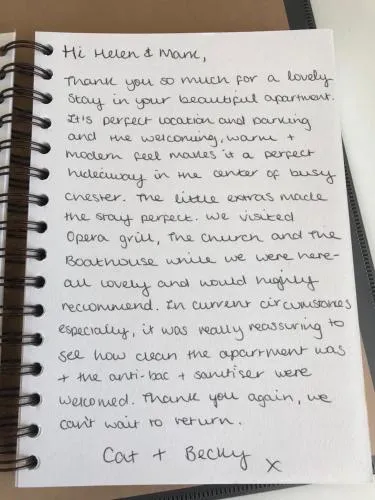 Hi Helen & Mark,
Thank you so much for a lovely
stay in your beautiful apartment.
It's perfect location and parking
and the welcoming, warm +
modern feel makes it a perfect
hideaway in the center of busy
Chester. The little extras made
the stay perfect. We visited
Opera grill, The Church and The
Boathouse while we were here-
all lovely and would highly
reccommend. In current circumstances
especially, it was really reassuring to
see how clean the apartment was
+ the anti-bac + sanitiser were
welcomed. Thank you again, we
can't wait to return.
Cat + Becky x